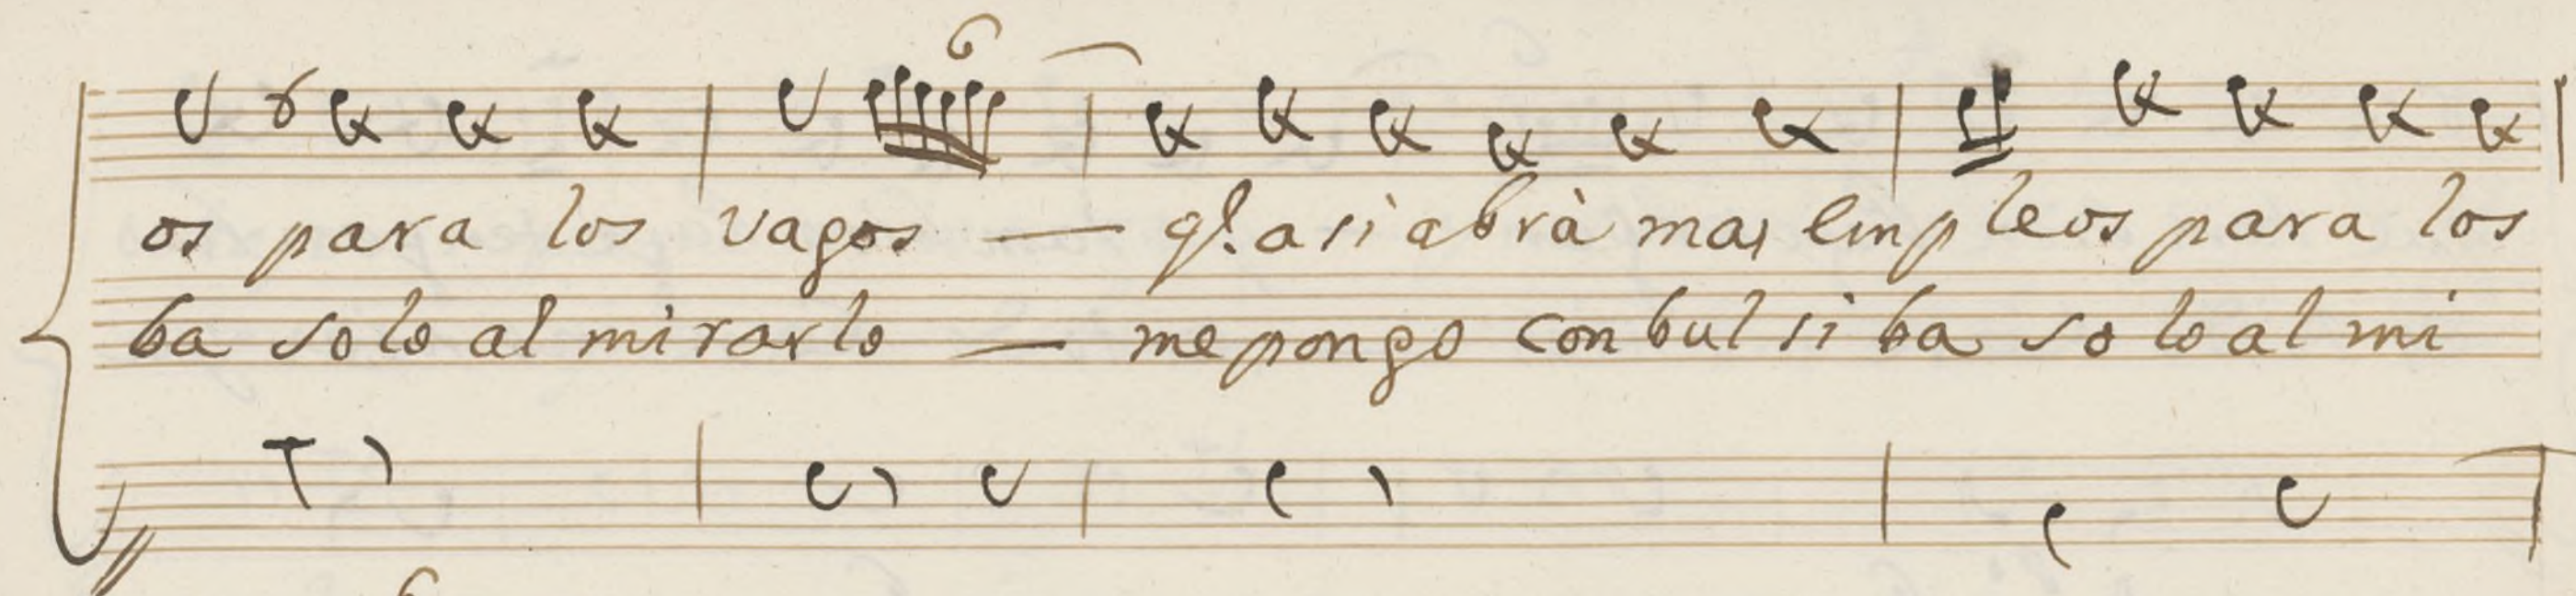 6
os para los vagos — q.e asi abrà mas empleos para los
ba solo al mirarlo — me pongo conbulsiba solo al mi
6